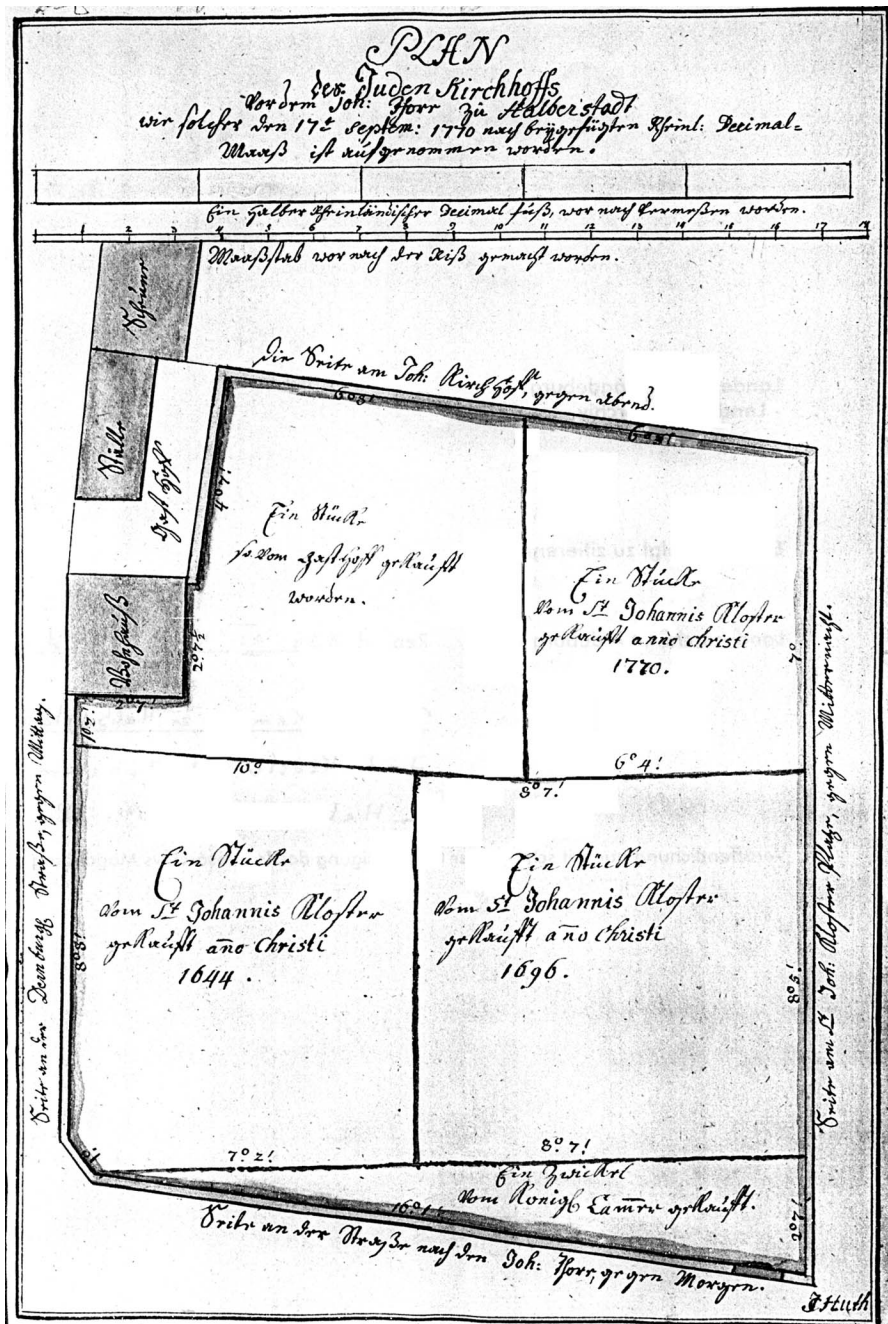 PLAN
des Juden Kirchhoffs
Vor dem Joh: Thore zu Halberstadt
wie solcher den 17t Septem: 1770 nach beÿgefügten Rheinl: Decimal=
Maaß ist aufgenommen worden.
Ein Halber Rheinländischer Decimal fuß, wor nach Vermeßen worden.
1 2 3 4 5 6 7 8 9 10 11 12 13 14 15 16 17 18
Maaßstab wor nach der Riß gemacht worden.
Scheune
Ställe
Gast Hoff
Wohnhauß
die Seite am Joh: Kirch Hoff, gegen Abend.
6°8!
4°7!
2°7½
2°7!
1°2!
Ein Stücke
so vom Gast Hoff gekaufft
worden.
Ein Stücke
Vom St Johannis Kloster
gekaufft anno Christi
1770.
7°
10°
6°4!
8°7!
Ein Stücke
Vom St Johannis Kloster
gekaufft año Christi
1644.
Ein Stücke
Vom St Johannis Kloster
gekaufft año Christi
1696.
8°8!
8°5!
7°2!
8°7!
Ein Zwickel
Vom Königl Cam̄er gekaufft.
2°7!
Seite an der Straße nach den Joh: Thore, gegen Morgen.
Seite an der Straße, gegen Mittag.
Seite am St Joh: Kloster Platze, gegen Mitternacht.
J Huth